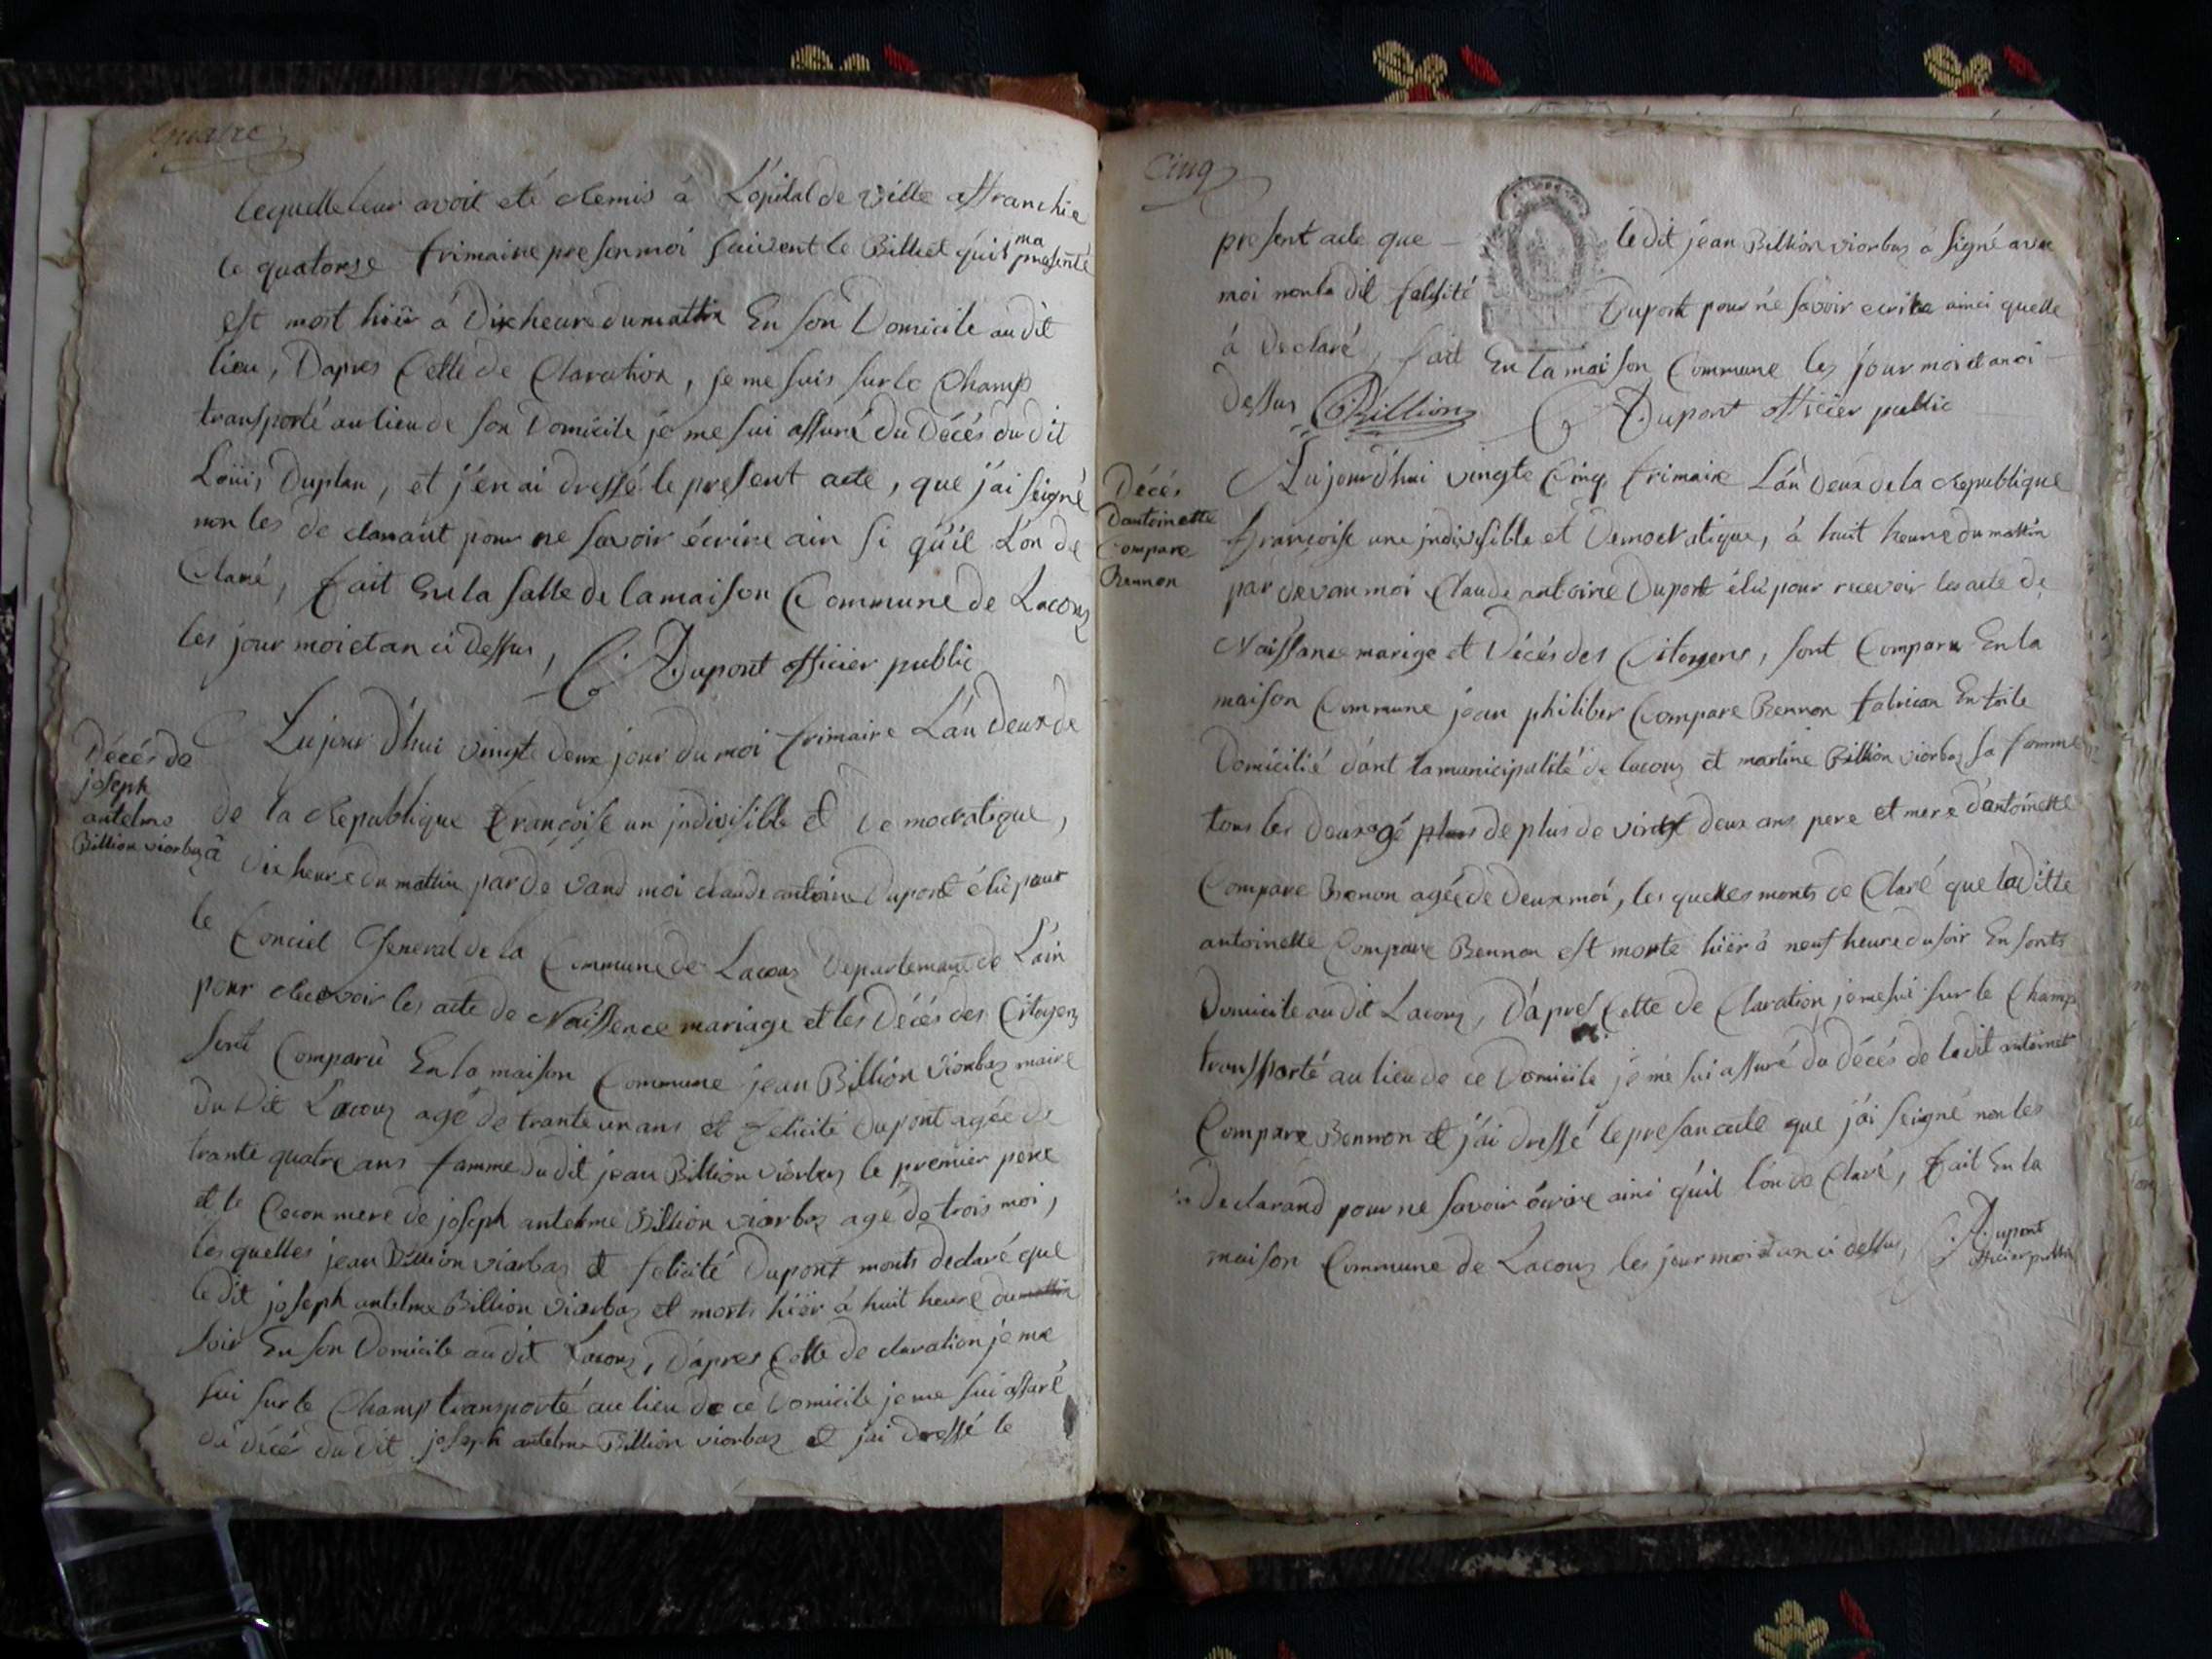 quatre
lequelle leur avoit eté remis à L'opital de ville affranchie
le quatorze frimaire presenmoi suivent le Billiet quil ma presenté
est mort hiër à Dix heure du mattin En son Domicile au dit
lieu, Dapres Cette de Claration, je me suis sur le Champ
transporté au lieu de son Domicile je me sui assuré Du Décés du dit
Loüis Duplan, et j'en ai dressé le present acte, que j'ai seigné
non les de clarant pour ne savoir écrire ain si qu'il L'on de
Claré, fait En la salle de la maison Commune de Lacoux
les jour moi et an ci dessus, C. A. Dupont officier public
Décés de
joseph
antelme
Billion viorbaz
Lujour d'hui vingte deux jour du moi frimaire L'an Deux de
de la Republique françoise un jndivisible et De mocratique,
à Dix heure du mattin par de vand moi claude antoine Dupont élü pour
le Conciel General de la Commune de Lacoux Departemant de L'ain
pour recevoir les acte de Naissence mariage et les Décés des Citoyens
sont Comparü En la maison Commune jean Billion viorbaz maire
du dit Lacoux agé de trante un ans et felicité Dupont agée de
trante quatre ans famme du dit jean Billion viorbaz le premier pere
et le Cecon mere de joseph antelme Billion viorbaz agé de trois moi,
les quelles jean Billion viorbaz et felicité Dupont monts declaré que
le dit joseph antelme Billion viorbaz et morts hiër à huit heure du mattin
soir En son Domicile au dit Lacoux, D'apres Cette de claration je me
sui sur le Champ transporté au lieu de ce Domicile je me sui assuré
du décé du dit joseph antelme Billion viorbaz et j'ai dressé le
Cinq
present acte que le dit jean Billion viorbaz à signé avec
moi non la dit felisité Dupont pour né savoir ecrire ainci quelle
à Declaré, fait En la maison Commune les jour moi et an ci
dessus Billion C. A. Dupont officier public
Décés
Dantoinette
Compare
Bennon
Aujourd'hui vingte Cinq frimaire L'an Deux de la Republique
françoise une jndivisible et Democratique, à huit heure du mattin
par devan moi Claude antoine Dupont élü pour recevoir les acte de
Naissance marige et Décés des Citoyens, sont Comparu En la
maison Commune jean philiber Compare Bennon fabrican En toile
Domicilié dant la municipalité de lacoux et martine Billion viorbaz sa famme
tous les deux agé plus de plus de vingt deux ans pere et mere d'antoinette
Compare Bennon agée de Deux moi, les quelles monts de Claré que laditte
antoinette Compare Bennon est morte hiër à neuf heure du soir En sonts
Domicile au dit Lacoux, D'apres Cette de Claration je me sui sur le Champ
transporté au lieu de ce Domicile je me sui assuré du décés de ladit antoinet
Compare Bennon et j'ai dressé le presan acte que j'ai seigné non les
Declarand pour ne savoir écrire ainci qu'il l'on de Claré, fait En la
maison Commune de Lacoux les jour moi et an ci dessus, C. A. Dupont
officier public